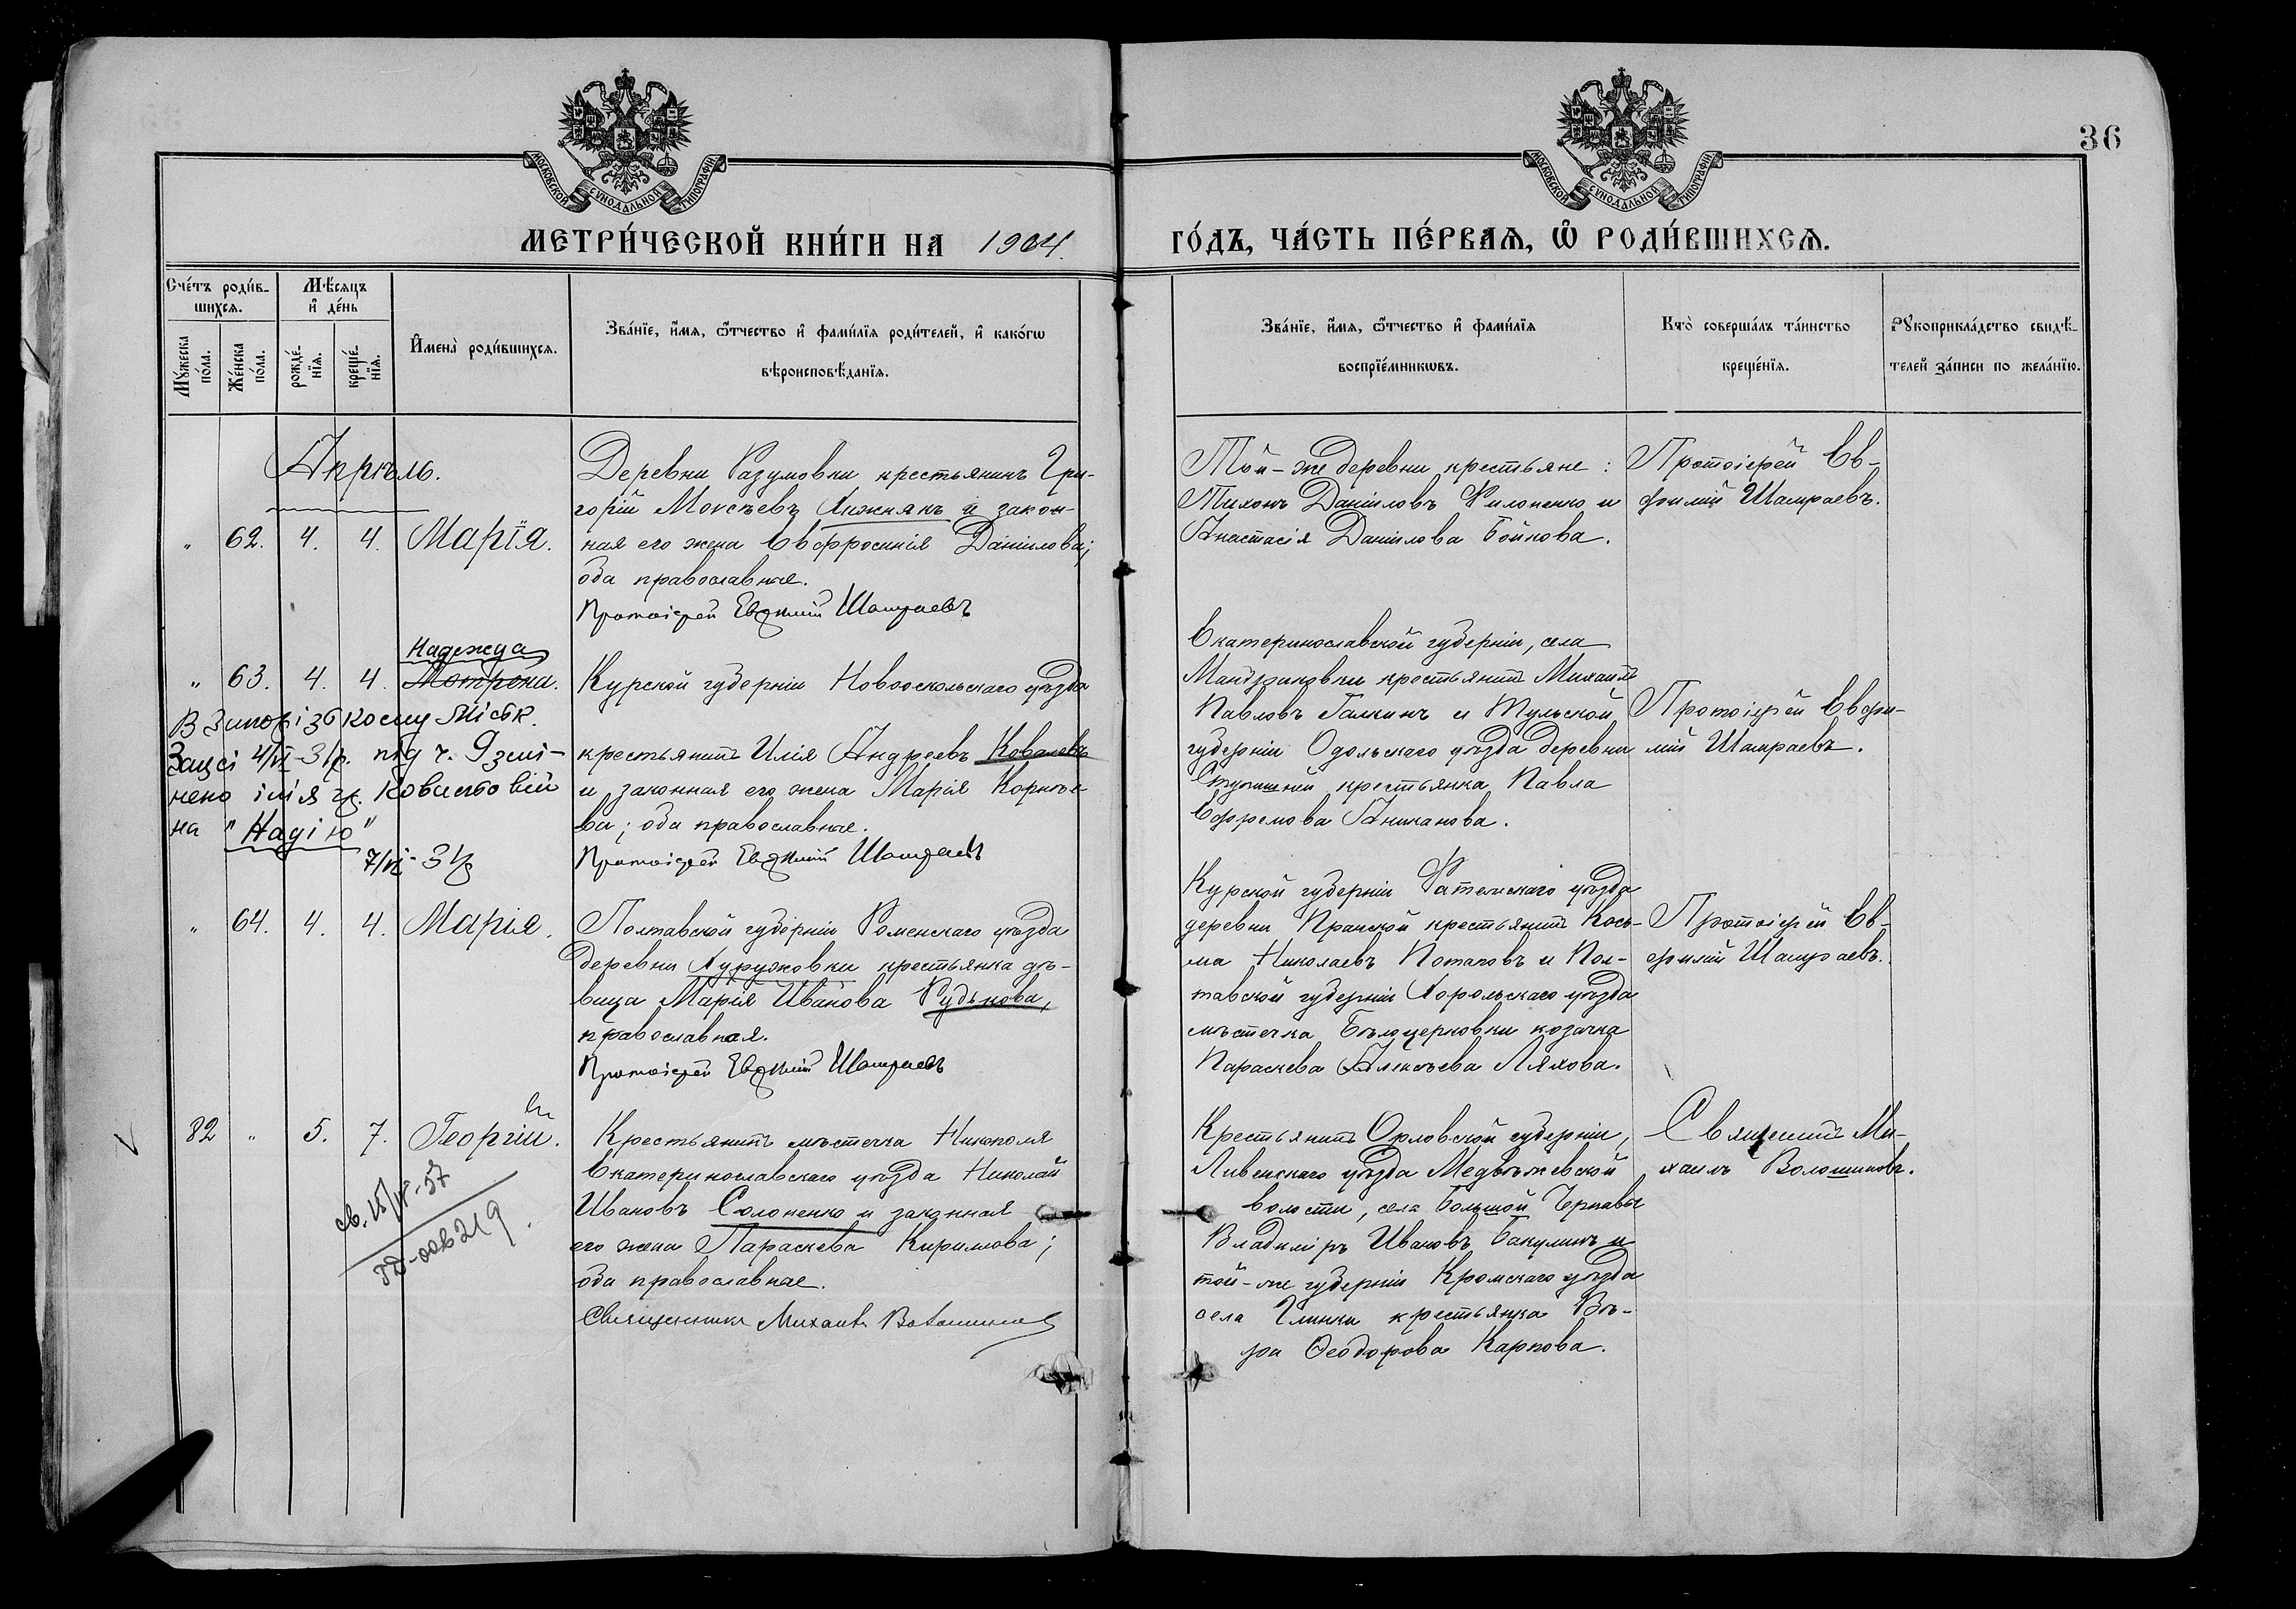 36
МОСКОВСКОЙ СѴНОДАЛЬНОЙ ТИПОГРАФІИ
МОСКОВСКОЙ СѴНОДАЛЬНОЙ ТИПОГРАФІИ
МЕТРИ́ЧЕСКОЙ КНИ́ГИ НА 1904.
ГО́ДЪ, ЧА́СТЬ ПЕ́РВАѦ, Ѡ҆ РОДИ́ВШИХСѦ.
Сче́тъ роди́в-
шихсѧ.
Мꙋ́жеска
по́ла.
Же́нска
по́ла.
Мѣ́сѧцъ
и҆ де́нь
рожде́-
нїѧ.
креще́-
нїѧ.
И҆мена̀ роди́вшихсѧ.
Зва́нїе, и҆́мѧ, ѻ҆́тчество и҆ фами́лїѧ роди́телей, и҆ како́гѡ
вѣроисповѣ́данїѧ.
Зва́нїе, и҆́мѧ, ѻ҆́тчество и҆ фами́лїѧ
воспрїе́мникѡвъ.
Кто̀ соверша́лъ та́инство
креще́нїѧ.
Рꙋкоприкла́дство свидѣ́-
телей за́писи по жела́нїю.
Апрѣль.
" 62. 4. 4. Марія.
Деревни Разумовки крестьянинъ Гри-
горій Моисѣевъ Хижнякъ и закон-
ная его жена Евфросинія Даніилова;
оба православные.
Протоіерей Евѳимій Шамраевъ
Той-же деревни крестьяне:
Тихонъ Даніиловъ Филоненко и
Анастасія Даніилова Бойкова.
Протоіерей Ев-
фимій Шамраевъ.
Надежда
" 63. 4. 4. Мотрона.
В Запорізькому Міськ.
Загсі 4/VI-31р. під ч. 9 змі-
нено ім'я гр. Ковальовій
на "Надію"
7/VI-31р
Курской губерніи Новооскольскаго уѣзда
крестьянинъ Илія Андреевъ Ковалевъ
и законная его жена Марія Корнѣе-
ва; оба православные.
Протоіерей Евѳимій Шамраевъ
Екатеринославской губерніи, села
крестьянинъ Михаилъ
Павловъ Галкинъ и Тульской
губерніи Одоѣвскаго уѣзда деревни
крестьянка Павла
Ефремова Аниканова.
Протоіерей Евфи-
мій Шамраевъ.
" 64. 4. 4. Марія.
Полтавской губерніи Роменскаго уѣзда
деревни Хуружовки крестьянка дѣ-
вица Марія Иванова Рудькова,
православная.
Протоіерей Евѳимій Шамраевъ
Курской губерніи Фатежскаго уѣзда
деревни крестьянинъ Кось-
ма Николаевъ Потаповъ и Пол-
тавской губерніи Хорольскаго уѣзда
мѣстечка Бѣлоцерковки козачка
Параскева Алексѣева Ляхова.
Протоіерей Ев-
фимій Шамраевъ.
82 " 5. 7. Георгій.
св. 15/IV-57
Крестьянинъ мѣстечка Никополя
Екатеринославскаго уѣзда Николай
Ивановъ Солоненко и законная
его жена Параскева Кириллова;
оба православные.
Священникъ Михаилъ Волошиновъ
Крестьянинъ Орловской губерніи,
Ливенскаго уѣзда Медвѣжевской
волости, села Большой Чернавы
Владиміръ Ивановъ Бакулинъ и
той-же губерніи Кромскаго уѣзда
села Глинки крестьянка Вѣ-
ра Ѳеодорова Карпова.
Священникъ Ми-
хаилъ Волошиновъ.